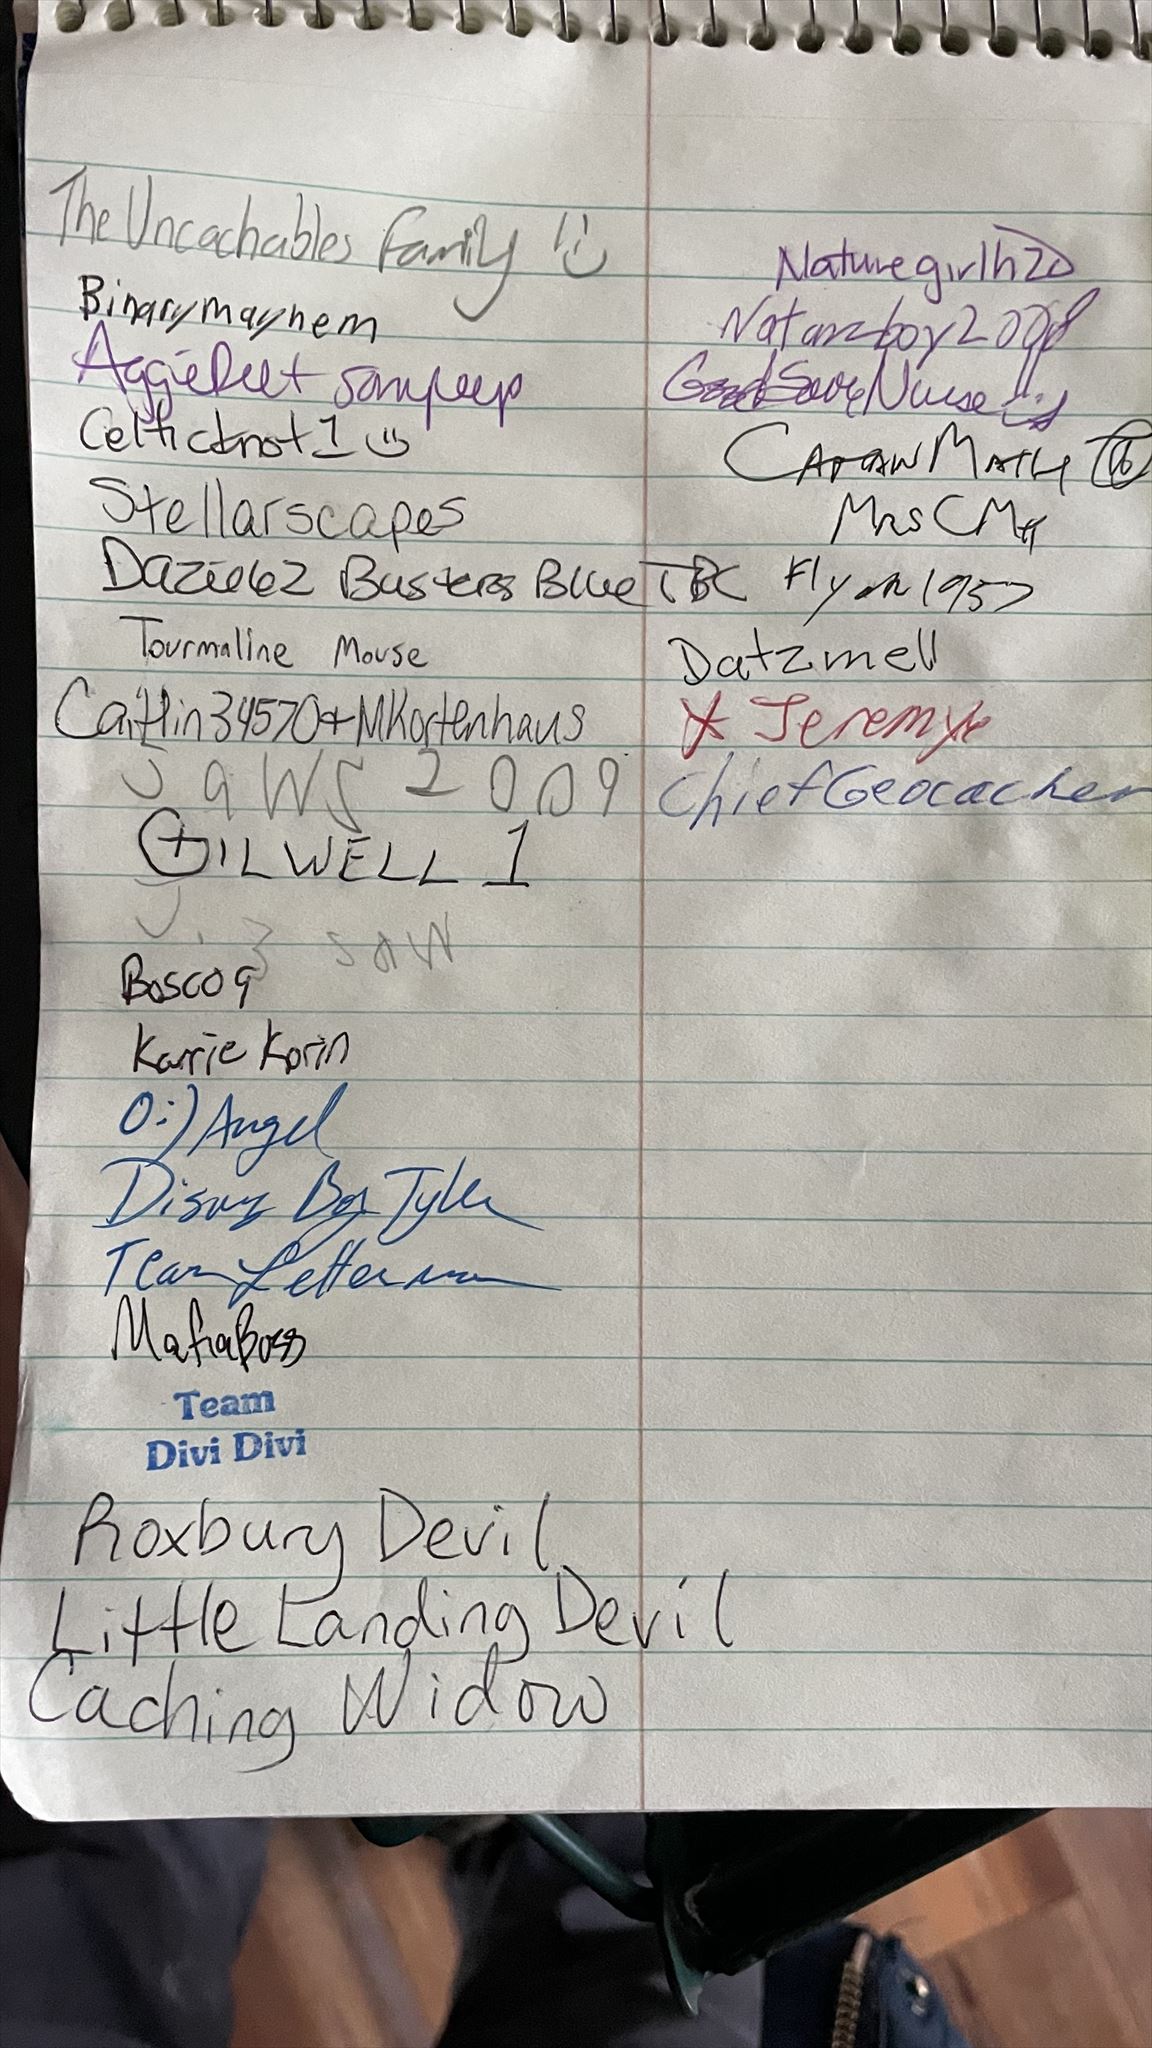 The Uncachables Family :)
Binarymayhem
Celticknot1 :)
Stellarscapes
Dazie62 Busters Blue TBC
Tourmaline Mouse
Caitlin34570+MKortenhaus
Jaws 2009
GILWELL 1
Bosco9
Karrie Korin
O:) Angel
Disney Boy Tyler
Team Letterman
MafiaBoss
Team
Divi Divi
Roxbury Devil
Little Landing Devil
Caching Widow
Naturegirlh20
Natureboy2008
Mrs CM
Datzmell
Jeremy
ChiefGeocacher